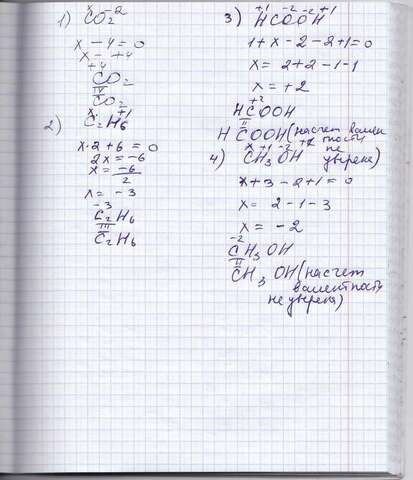 1) x -2
CO2
x - 4 = 0
x = +4
+4
CO2
IV
CO2
2) x +1
C2H6
x·2 + 6 = 0
2x = -6
x = -6/2
x = -3
-3
C2H6
III
C2H6
3) +1 x -2 -2 +1
HCOOH
1+x-2-2+1=0
x = 2+2-1-1
x = +2
+2
HCOOH
II
HCOOH (насчет вален
тности
не
уверена)
4) x +1 -2 +1
CH3OH
x+3-2+1=0
x = 2-1-3
x = -2
-2
CH3OH
II
CH3OH (насчет
валентности
не уверена)